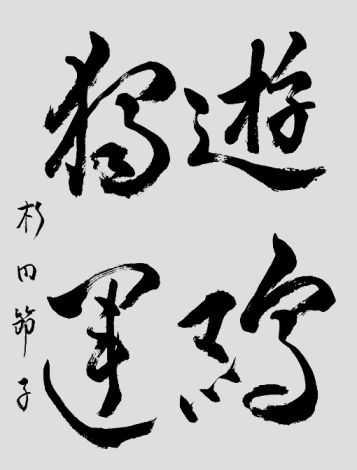 遊鵾
獨運
杉田節子